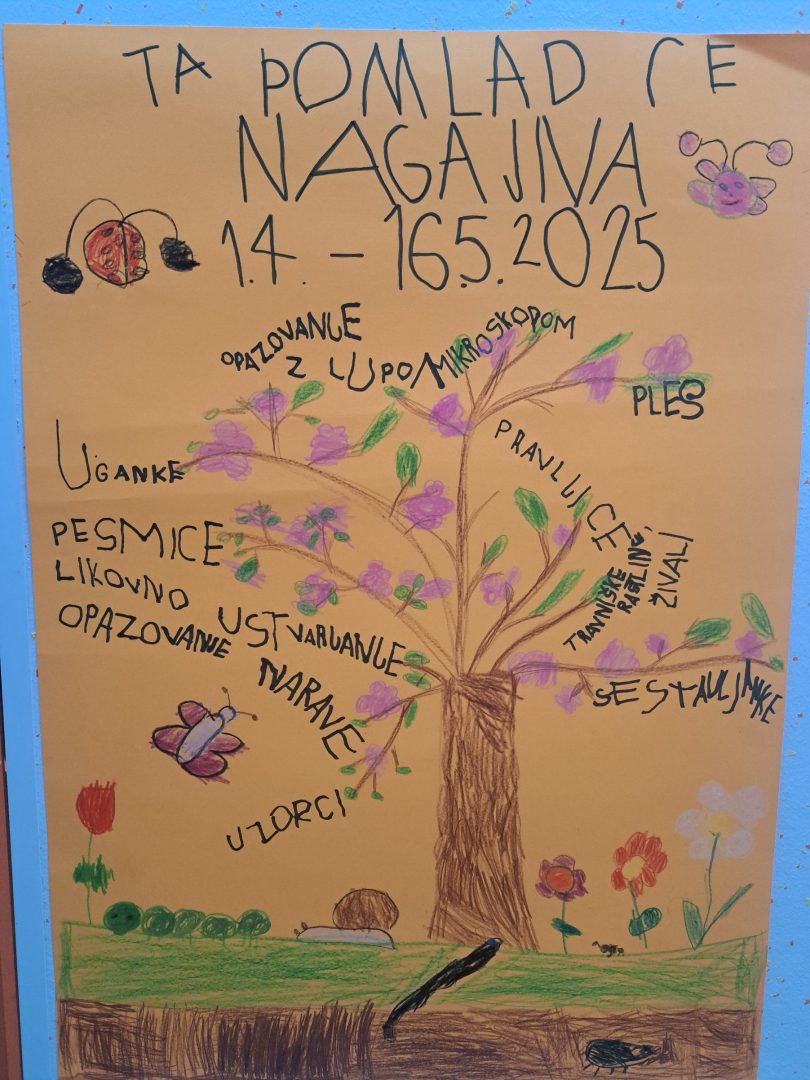 TA POMLAD ČE
NAGAJIVA
1.4. – 16.5.2025
OPAZOVANJE
Z LUPO/MIKROSKOPOM
PLES
UGANKE
PRAVLJICE
PESMICE
LIKOVNO
USTVARJANJE
TRAVNIŠKE
RASTLINE,
ŽIVALI
OPAZOVANJE
NARAVE
SESTAVLJANKE
VZORCI